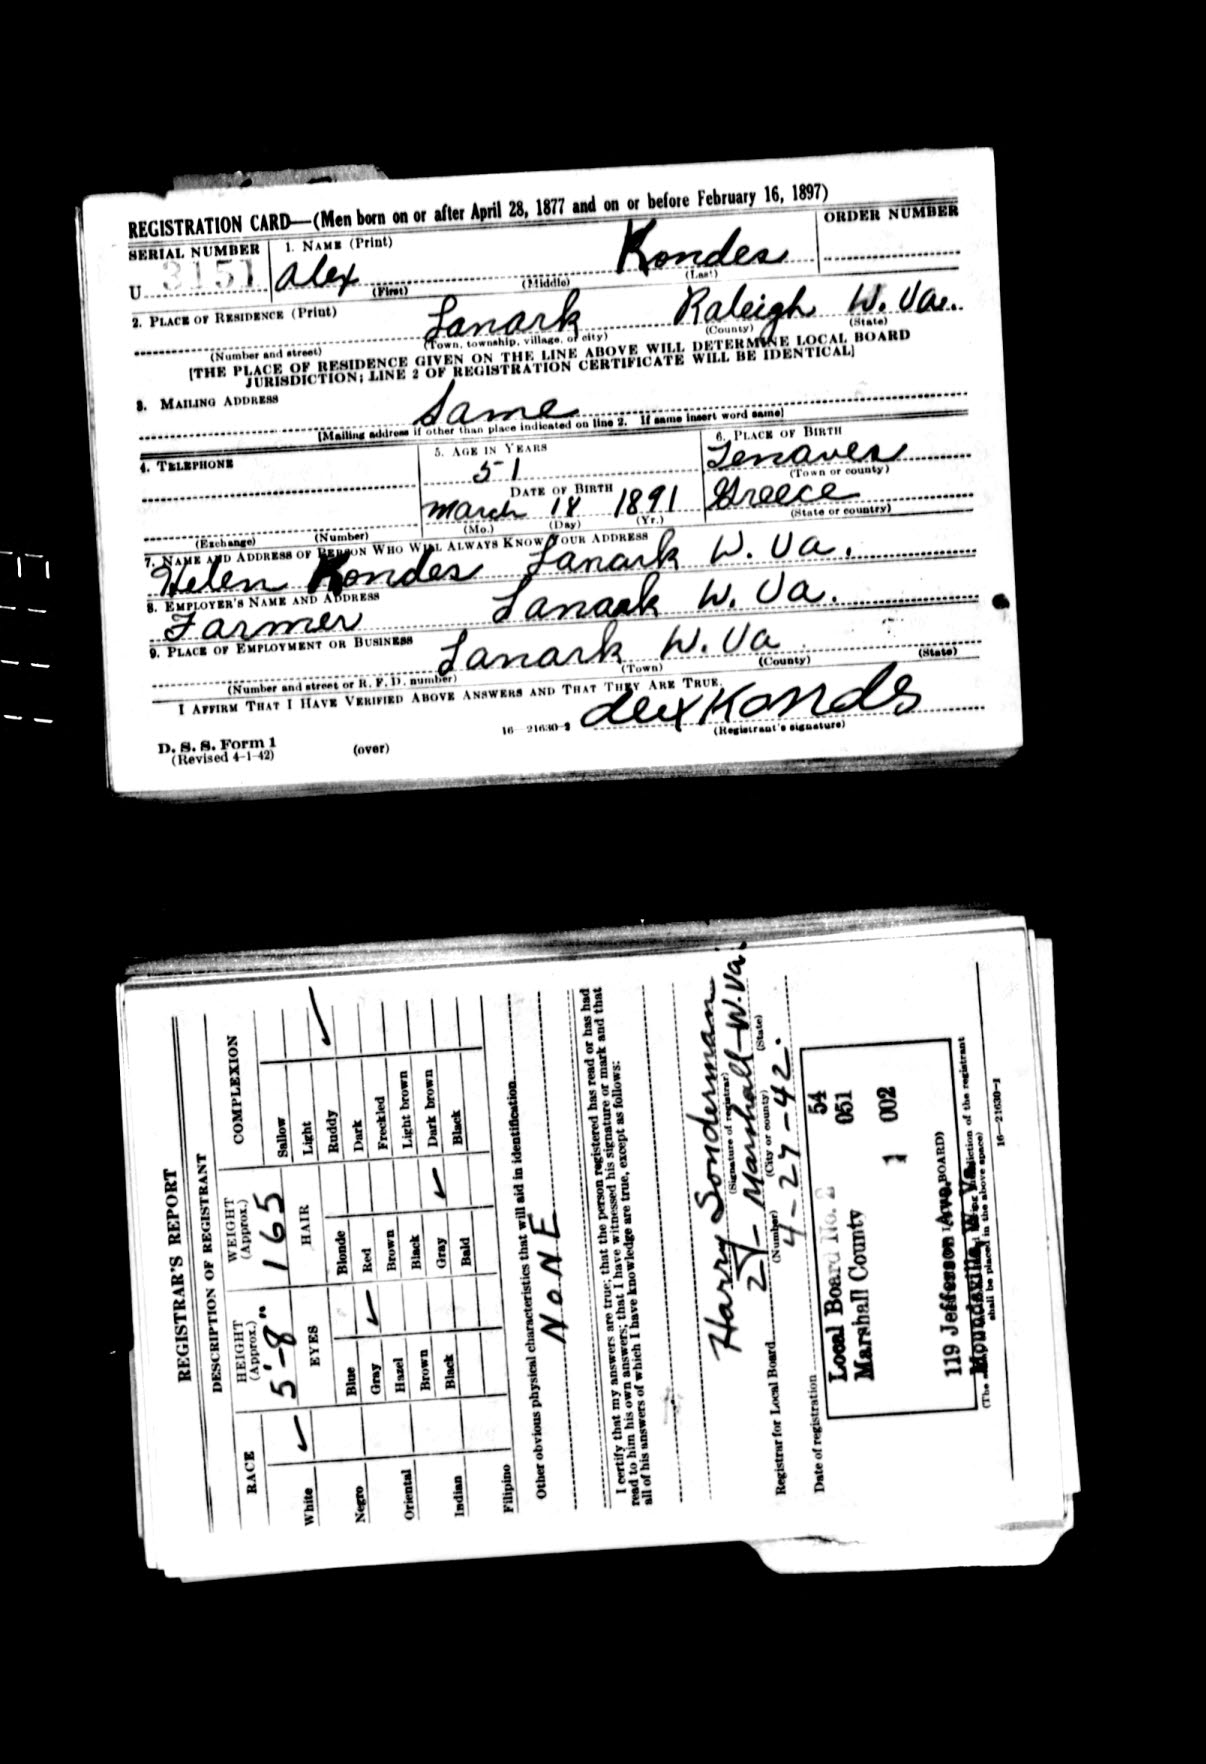 REGISTRATION CARD—(Men born on or after April 28, 1877 and on or before February 16, 1897)
SERIAL NUMBER
1. NAME (Print)
ORDER NUMBER
U 3151
Alex Kondes
(First) (Middle) (Last)
2. PLACE OF RESIDENCE (Print)
Lanark Raleigh W. Va.
(Number and street) (Town, township, village, or city) (County) (State)
[THE PLACE OF RESIDENCE GIVEN ON THE LINE ABOVE WILL DETERMINE LOCAL BOARD
JURISDICTION; LINE 2 OF REGISTRATION CERTIFICATE WILL BE IDENTICAL]
3. MAILING ADDRESS
Same
[Mailing address if other than place indicated on line 2. If same insert word same]
4. TELEPHONE
5. AGE IN YEARS
6. PLACE OF BIRTH
51
Tenaves
(Town or county)
DATE OF BIRTH
March 18 1891
Greece
(Exchange) (Number)
(Mo.) (Day) (Yr.)
(State or country)
7. NAME AND ADDRESS OF PERSON WHO WILL ALWAYS KNOW YOUR ADDRESS
Helen Kondes Lanark W. Va.
8. EMPLOYER'S NAME AND ADDRESS
Farmer Lanark W. Va.
9. PLACE OF EMPLOYMENT OR BUSINESS
Lanark W. Va
(Number and street or R. F. D. number) (Town) (County) (State)
I AFFIRM THAT I HAVE VERIFIED ABOVE ANSWERS AND THAT THEY ARE TRUE.
D. S. S. Form 1
(Revised 4-1-42)
(over)
16—21630-2
Alex Konds
(Registrant's signature)
REGISTRAR'S REPORT
DESCRIPTION OF REGISTRANT
RACE
HEIGHT
(Approx.)
WEIGHT
(Approx.)
COMPLEXION
5'-8"
165
White
Negro
Oriental
Indian
Filipino
EYES
Blue
Gray
Hazel
Brown
Black
HAIR
Blonde
Red
Brown
Black
Gray
Bald
Sallow
Light
Ruddy
Dark
Freckled
Light brown
Dark brown
Black
Other obvious physical characteristics that will aid in identification
NONE
I certify that my answers are true; that the person registered has read or has had
read to him his own answers; that I have witnessed his signature or mark and that
all of his answers of which I have knowledge are true, except as follows:
Harry Sonderman
(Signature of registrar)
Registrar for Local Board 2 Marshall W. Va.
(Number) (City or county) (State)
Date of registration 4-27-42.
Local Board No. 2 54
Marshall County 051
1 002
119 Jefferson Ave.
BOARD)
Moundsville, W. Va.
(The diction of the registrant
shall be placed in the above space)
16—21630-1